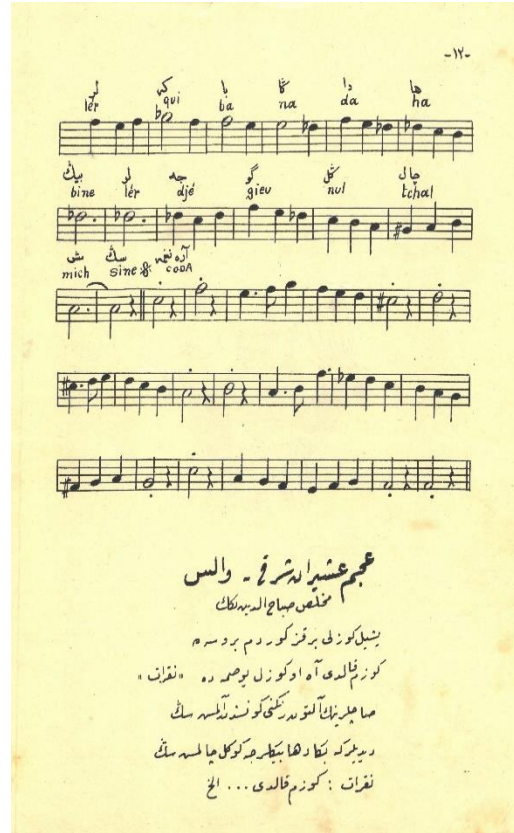 -١٢-
ها دا ڭا با كه لر
lér qui ba na da ha
چال ڭل گو جه لر بيڭ
bine lér djé gieu nul tchal
آره نغمه سڭ مش
mich sine CODA
عجم عشيران شرقى - والس
مخلص صباح الدين بكك
يشيل كوزلى برقز كوردم بروسه ده
كوزم قالدى آه او كوزل يوصمه ده «نقرات»
صاچلرينك آلتون رنكنى كونشدن آلمش سڭ
ديديلركه بكا دها بيكلرجه كوكل چالمش سڭ
نقرات : كوزم قالدى ... الخ